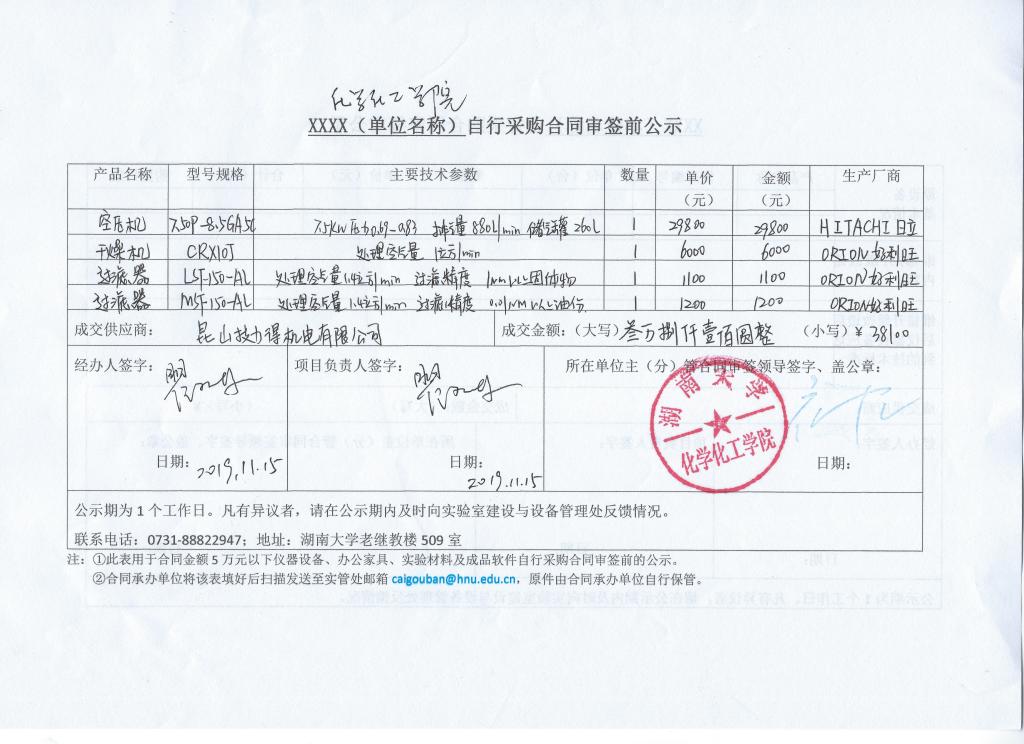 化学化工学院
XXXX（单位名称）自行采购合同审签前公示
产品名称 型号规格 主要技术参数 数量 单价（元） 金额（元） 生产厂商
空压机 7.5OP-8.5GA5C 7.5KW 压力0.69-0.83 排气量 880L/min 储气罐 260L 1 29800 29800 HITACHI 日立
干燥机 CRX10J 处理空气量 1立方/min 1 6000 6000 ORION 好利旺
过滤器 LSF-150-AL 处理空气量1.4立方/min 过滤精度 1um以上固体物 1 1100 1100 ORION 好利旺
过滤器 MSF-150-AL 处理空气量1.4立方/min 过滤精度 0.01um以上油份 1 1200 1200 ORION好利旺
成交供应商： 昆山技力得机电有限公司 成交金额：（大写）叁万捌仟壹佰圆整 （小写）￥38100
经办人签字： 项目负责人签字： 所在单位主（分）管合同审签领导签字、盖公章：
湖南大学
化学化工学院
日期：2019.11.15 日期：2019.11.15 日期：
公示期为1个工作日。凡有异议者，请在公示期内及时向实验室建设与设备管理处反馈情况。
联系电话：0731-88822947；地址：湖南大学老继教楼 509 室
注：①此表用于合同金额5万元以下仪器设备、办公家具、实验材料及成品软件自行采购合同审签前的公示。
②合同承办单位将该表填好后扫描发送至实管处邮箱 caigouban@hnu.edu.cn，原件由合同承办单位自行保管。